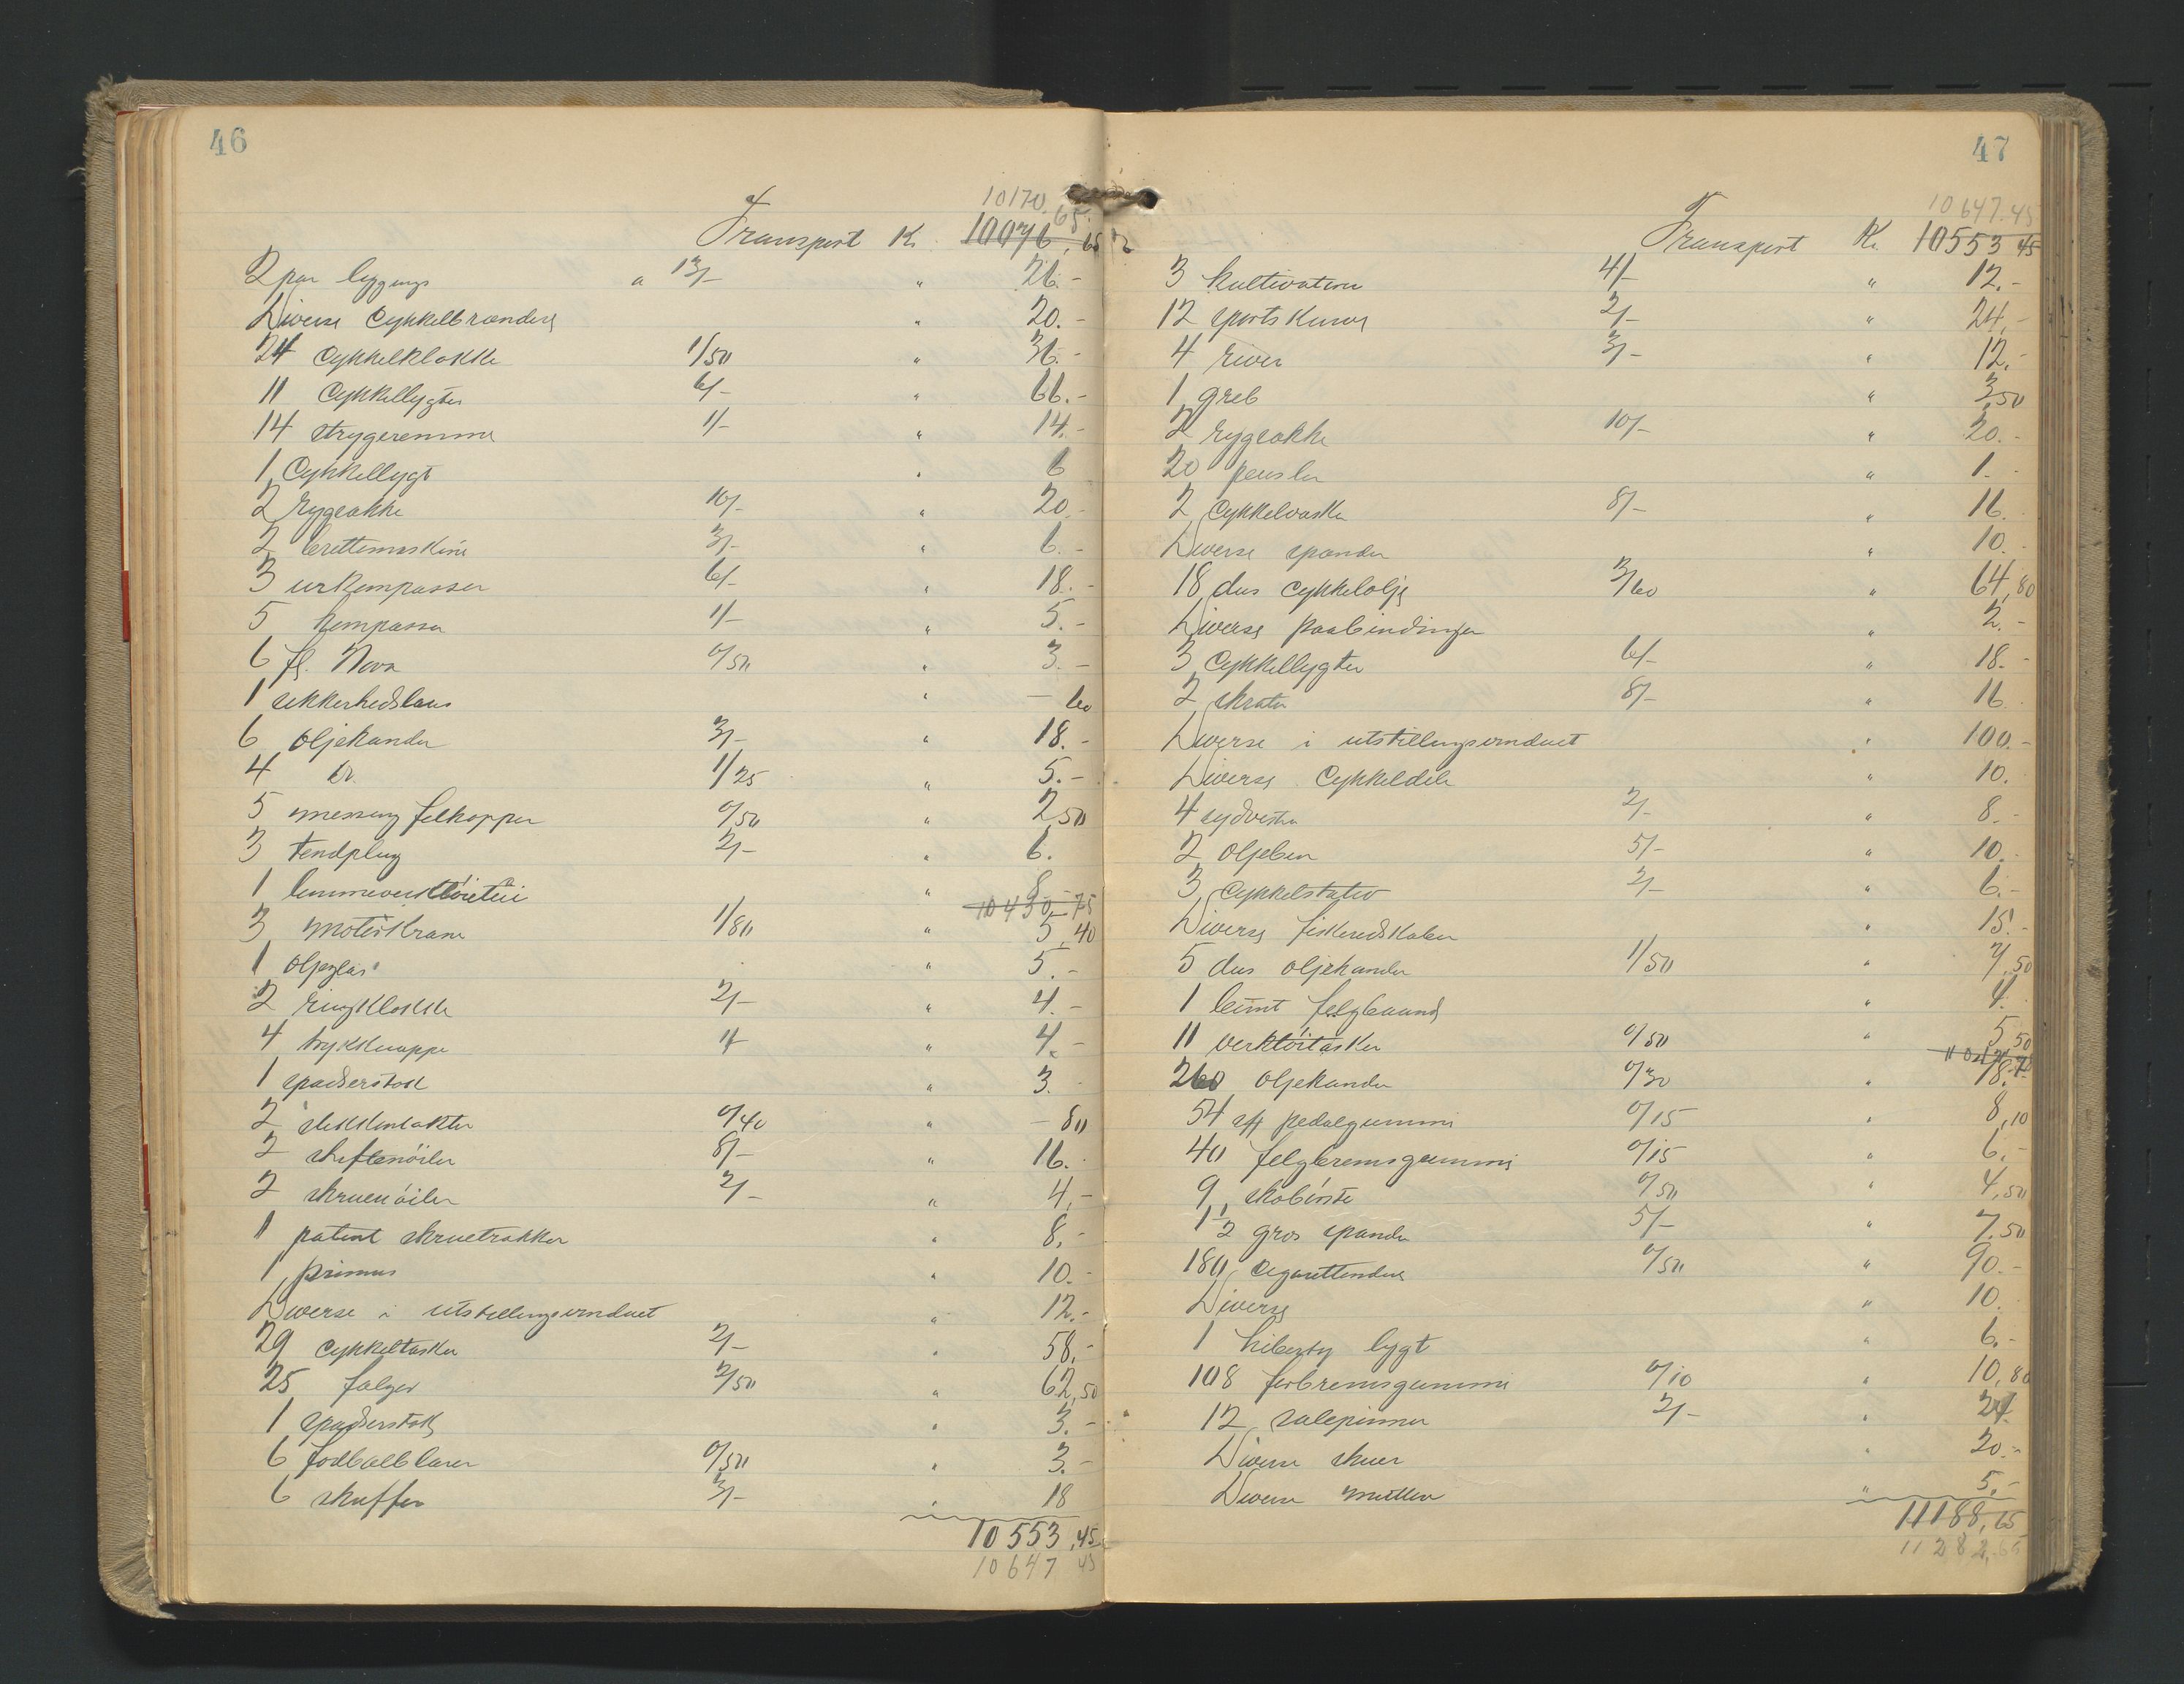 46
10170.65
Transport Kr. 10076,65
2 par leggings a 13/- " 26.-
Diverse Cykkelbrænders " 20.-
24 Cykkelklokke 1/50 " 36.-
11 Cykkellygter 6/- " 66.-
14 strygeremme 1/- " 14.-
1 Cykkellygt " 6
2 rygsække 10/- " 20.-
2 brettemaskine 3/- " 6.-
3 urkompasser 6/- " 18.-
5 kompasser 1/- " 5.-
6 fl. Nova 0/50 " 3.-
1 sikkerhedslaas " - 60
6 oljekander 3/- " 18.-
4 Do. 1/25 " 5.-
5 messing felkopper 0/50 " 2,50
3 tendplug 2/- " 6.
1 lommeverktøietui " 8
10430,75
3 motorkrane 1/80 " 5,40
1 oljeglas " 5.-
2 ringklokke 2/- " 4.-
4 trykknappe 1/- " 4.-
1 spadserstok " 3.-
2 stikkontakter 0/40 " - 80
2 skiftenøiler 8/- " 16.-
2 skruenøiler 2/- " 4,-
1 patent skruetrækker " 8,-
1 primus " 10.-
Diverse i utstillingsvinduet " 12.-
29 Cykkeltasker 2/- " 58,-
25 felger 2/50 " 62,50
1 spadserstok " 3.-
6 fodballblærer 0/50 " 3.-
6 skuffer 3/- " 18
10553,45
10647 45
47
10647.45
Transport Kr 10553 45
3 kultivatorer 4/- " 12.-
12 sportskurve 2/- " 24,-
4 river 3/- " 12.-
1 greb " 3,50
2 rygsække 10/- " 20.-
20 pensler " 1.-
2 Cykkelvasker 8/- " 16.
Diverse spænder " 10.-
18 dus Cykkelolje 3/60 " 64,80
Diverse paabindinger " 2.-
3 Cykkellygter 6/- " 18.-
2 skrater 8/- " 16.
Diverse i utstillingsvinduet " 100.-
Diverse Cykkeldele " 10.
4 sydvester 2/- " 8.-
2 oljeben 5/- " 10.
3 Cykkelstativ 2/- " 6.-
Diverse fiskeredskaber " 15.-
5 dus oljekander 1/50 " 7,50
1 beint felgbaand " 4.
11 verktøitasker 0/50 " 5,50
260 oljekander 0/30 " 78.-
54 st pedalgummi 0/15 " 8,10
40 felgbremsgummi 0/15 " 6.-
9 skobørste 0/50 " 4,50
1 1/2 gros spænder 5/- " 7.50
180 Cigarettendere 0/50 " 90.-
Diverse " 10.
1 Liberty lygt " 6.-
108 forbremsgummi 0/10 " 10,80
12 salepinner 2/- " 24
Diverse skuer " 20.-
Diverse mutter " 5.-
11188,65
11282,65